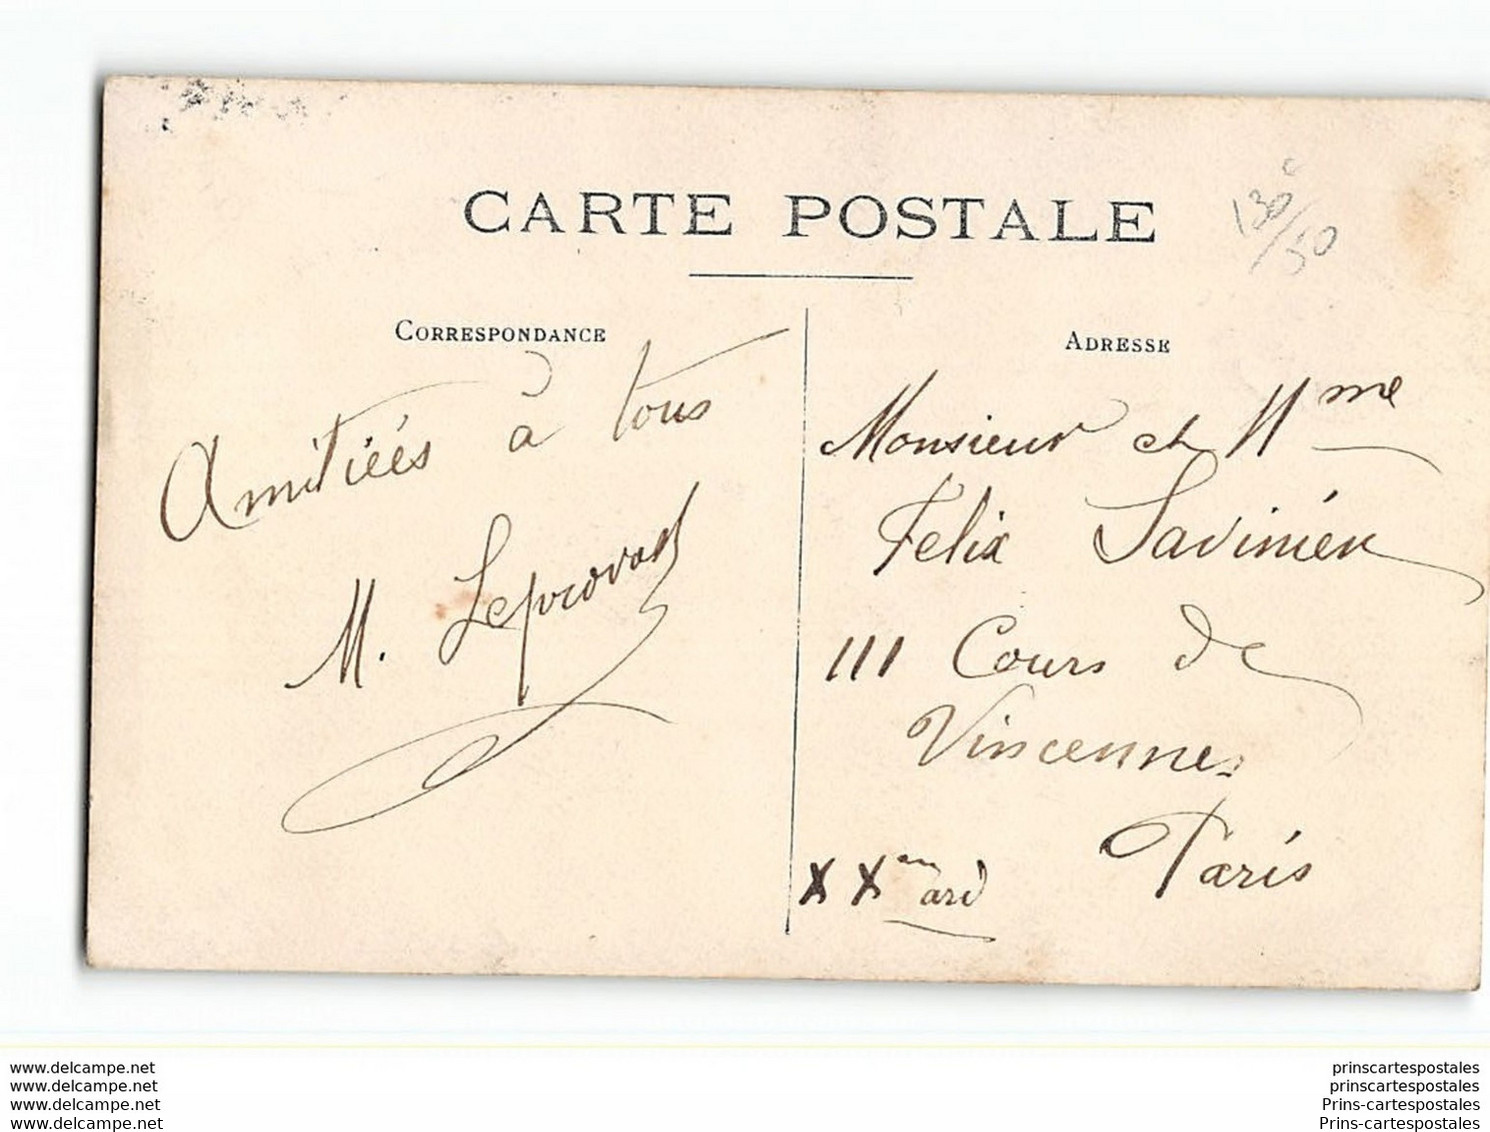 CARTE POSTALE
130c/50
CORRESPONDANCE
Amitiés à tous
M. Leprovost
ADRESSE
Monsieur et Mme
Felix Savinien
111 Cours de
Vincennes
Paris
XXem ard
www.delcampe.net
www.delcampe.net
www.delcampe.net
www.delcampe.net
prinscartespostales
prinscartespostales
Prins-cartespostales
Prins-cartespostales